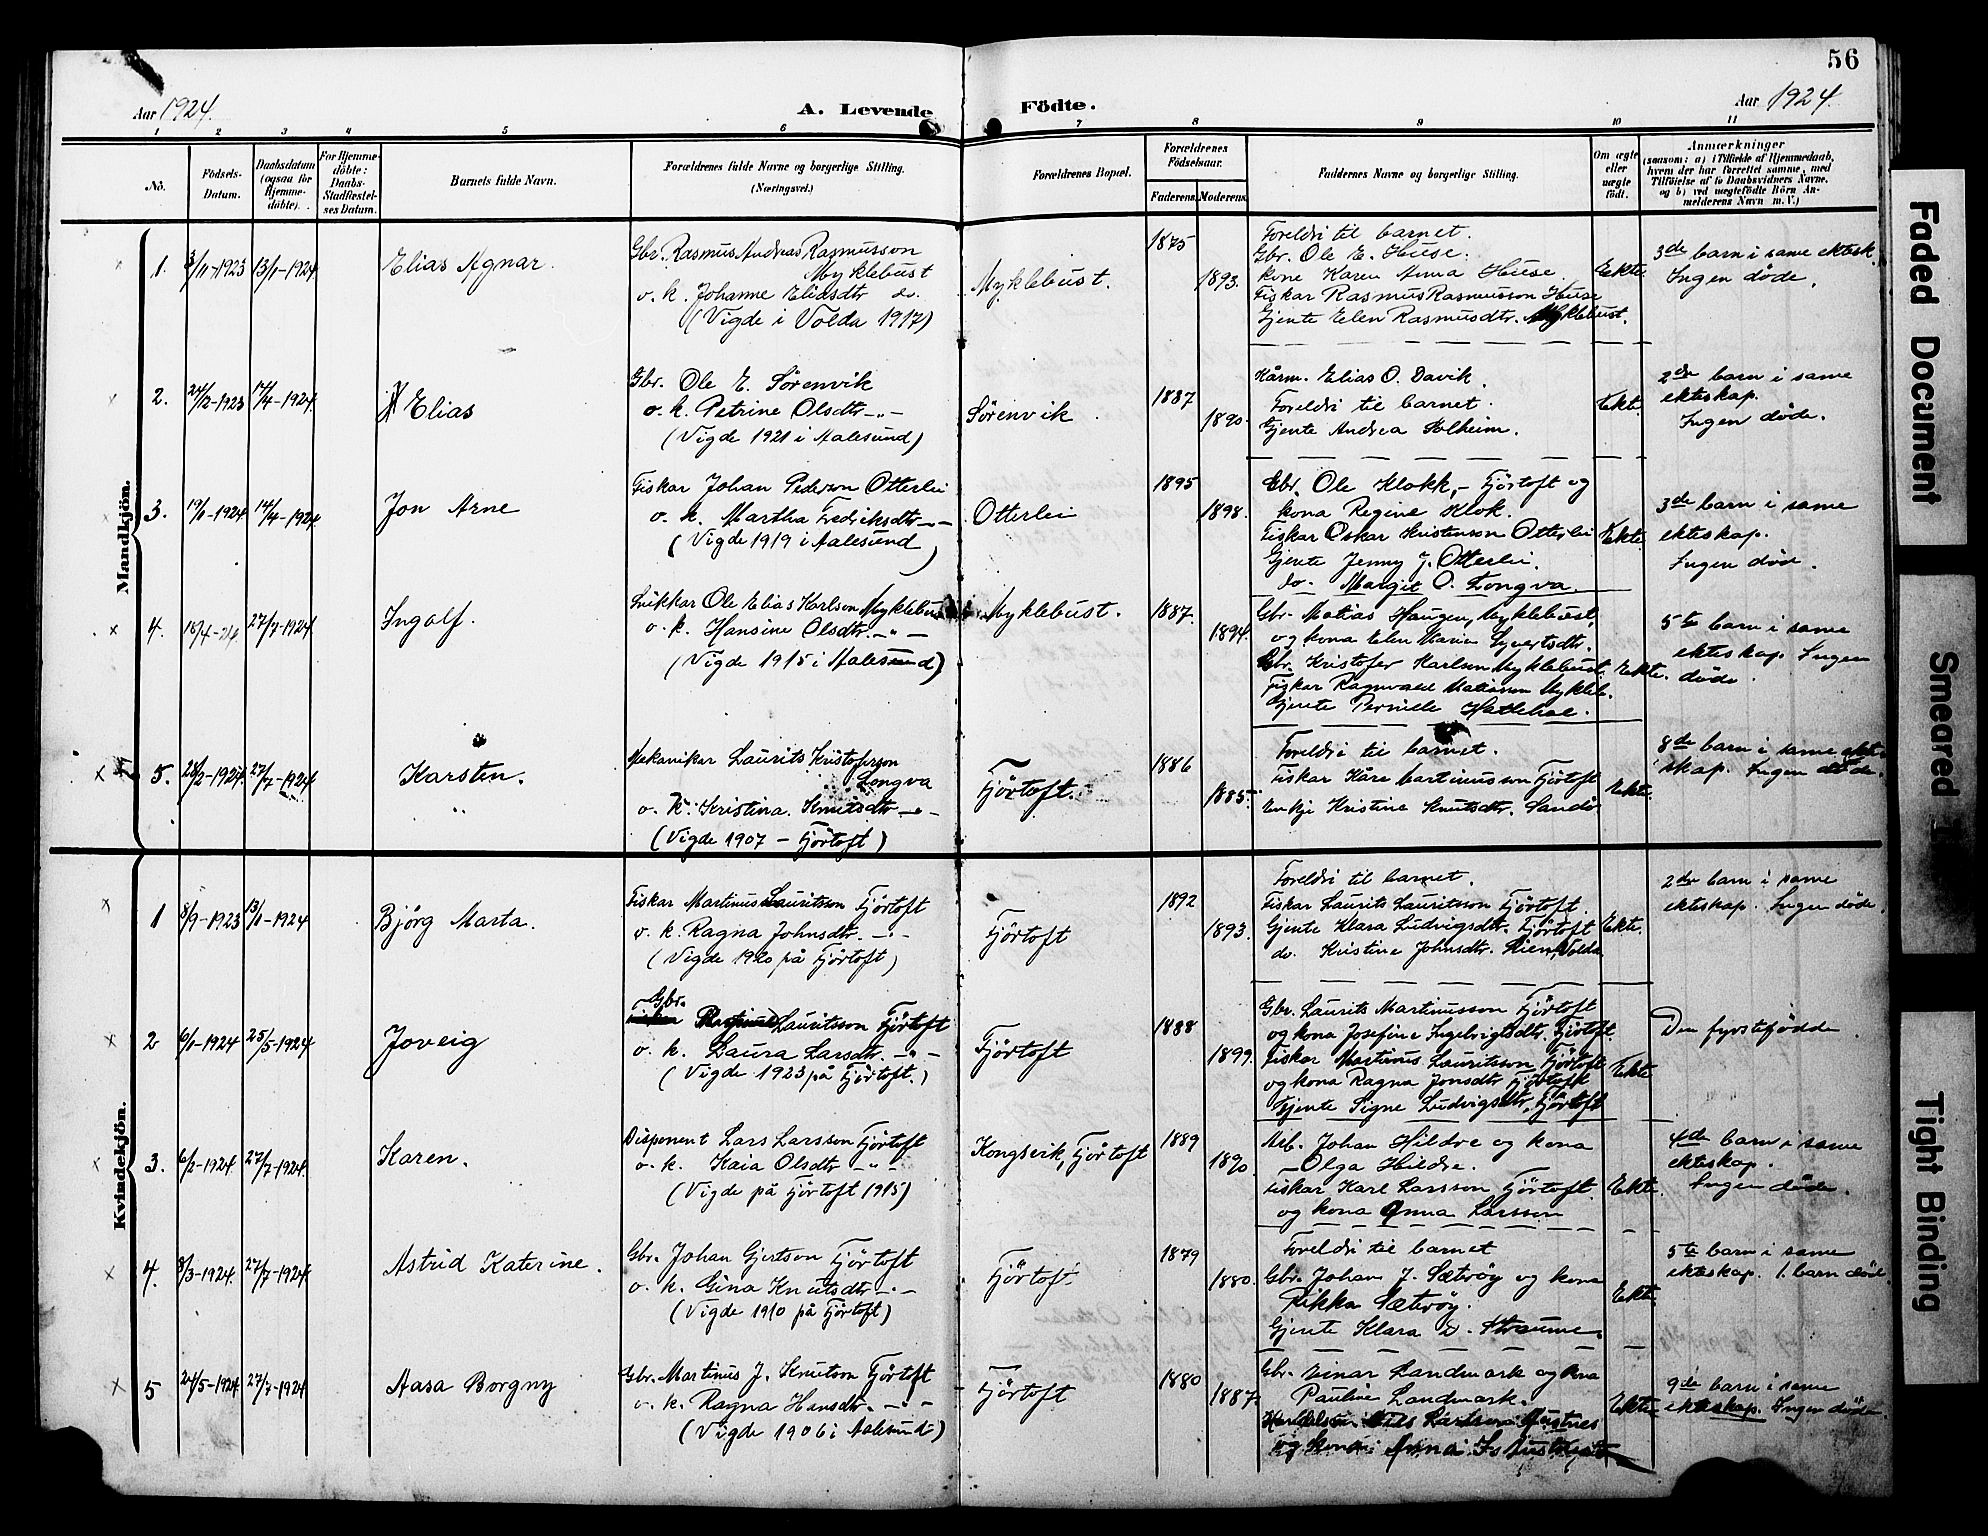 56
Aar 1924.
A. Levende Födte.
Aar 1924
1 2 3 4 5 6 7 8 9 10 11
No.
Födsels-
Datum.
Daabsdatum
(ogsaa for
Hjemme-
döbte).
For Hjemme-
döbte:
Daabs-
Stadfæstel-
ses Datum.
Barnets fulde Navn.
Forældrenes fulde Navne og borgerlige Stilling.
(Næringsvei.)
Forældrenes Bopæl.
Forældrenes
Födselsaar.
Faderens
Moderens
Faddernes Navne og borgerlige Stilling.
Om ægte
eller
uægte
født.
Anmærkninger
(saasom: a) i Tilfælde af Hjemmedaab,
hvem der har forrettet samme, med
Tilføielse af to Daabsvidners Navne,
og b) ved uægtefödte Börn An-
melderens Navn m. V.)
Mandkjön.
1. 3/11-1923 13/1-1924 Elias Agnar.
Gbr. Rasmus Andreas Rasmusson
Myklebust
o. k. Johanne Eliasdtr do.
(Vigde i Volda 1917)
Myklebust.
1875
1893.
Foreldri til barnet.
Gbr. Ole E. Huse.
kone Karen Anna Huse.
Fiskar Rasmus Rasmusson Huse
Gjente Elen Rasmusdtr. Myklebust.
Ekte.
3de barn i same ektesk.
Ingen døde.
2. 24/12-1923 17/4-1924 Elias
Gbr. Ole E. Sørenvik
o. k. Petrine Olsdtr -"-
(Vigde 1921 i Aalesund)
Sørenvik.
1887
1890.
Kårm. Elias O. Davik.
Foreldri til barnet.
Gjente Andrea Solheim.
Ekte.
2dre barn i same
ekteskap.
Ingen døde.
3. 19/1-1924 14/4-1924 Jon Arne
Fiskar Johan Pederson Otterlei
o. k. Martha Fredriksdtr -"-
(Vigde 1919 i Aalesund)
Otterlei
1895
1898.
Gbr. Ole Klokk, - Fjörtoft og
kona Regine Klok.
Fiskar Oskar Kristenson Otterlei
Gjente Jenny J. Otterlei.
do. Margit O. Longva.
Ekte.
3de barn i same
ekteskap.
Ingen død.
4. 18/4-24 27/7-1924 Ingolf.
Snikkar Ole Elias Karlson Myklebust
o. k. Hansine Olsdtr. -"-
(Vigde 1915 i Aalesund)
Myklebust.
1887.
1894.
Gbr. Matias Haugen, Myklebust,
og kona Elen Marie Syvertsdtr.
Gbr. Kristofer Karlson Myklebust.
Fiskar Ragnvald Matiasson Mykleb.
Gjente Pernille Hattehol.
Ekte.
5te barn i same
ekteskap. Ingen
døde.
5. 28/2-1924. 27/7-1924 Karsten.
Mekanikar Laurits Kristoferson
Longva
o. k. Kristina Knutsdtr -"-
(Vigde 1907 - Fjörtoft)
Fjörtoft.
1886
1885.
Foreldri til barnet.
Fiskar Kåre Martinusson Fjörtoft
Enkje Kristine Knutsdtr. Sandö
Ekte.
8de barn i same ekte-
skap. Ingen døde.
Kvindekjön.
1 8/9-1923 13/1-1924 Bjórg Marta.
Fiskar Martinus Lauritsson Fjörtoft
o. k. Ragna Johnsdtr. -"-
(Vigde 1920 på Fjörtoft)
Fjörtoft
1892
1893.
Foreldri til barnet.
Fiskar Laurits Lauritsson Fjörtoft.
Gjente Klara Ludvigsdtr. Fjörtoft
do. Kristine Johnsdtr. Lien, Volda
Ekte.
2dre barn i same
ekteskap. Ingen døde.
2 6/1-1924 25/5-1924 Joveig
Gbr.
Rasmus Lauritsson Fjörtoft
o. k. Laura Larsdtr. -"-
(Vigde 1923 på Fjörtoft.)
Fjörtoft
1888
1899.
Gbr. Laurits Martinusson Fjörtoft
og kona Josefine Ingebrigtsdtr. Fjörtoft.
Fiskar Martinus Lauritsson Fjörtoft
og kona Ragna Jonsdtr Fjörtoft
Gjente Signe Ludvigsdtr, Fjörtoft
Ekte
Den fyrstefødde
3. 6/2-1924. 27/7-1924 Karen.
Disponent Lars Larsson Fjörtoft
o. k. Kaia Olsdtr -"-
(Vigde på Fjörtoft 1915)
Kongsvik, Fjörtoft
1889
1890.
Arb. Johan Hildre og kona
Olga Hildre.
Fiskar Karl Larsson Fjörtoft
og kona Anna Larsson
Ekte.
4de barn i same
ekteskap.
Ingen døde.
4. 8/3-1924. 27/7-1924 Astrid Katerine.
Gbr. Johan Gjertson Fjörtoft
o. k. Gina Knutsdtr -"-
(Vigde 1910 på Fjörtoft)
Fjörtoft
1879
1880.
Foreldri til barnet
Gbr. Johan J. Sætröy og kona
Rikka Sætröy.
Gjente Klara D. Straume.
Ekte.
5te barn i same
ekteskap. 1. barn død.
5 24/5-1924. 27/7-1924 Aasa Borgny
Gbr. Martinus J. Knutson Fjörtoft
o. k. Ragna Hansdtr. -"-
(Vigde 1906 i Aalesund)
Fjörtoft
1880
1887.
Gbr. Einar Landmark og kona
Pauline Landmark.
og kona Anna
Ekte
9de barn i same
ekteskap. Ingen døde.
Faded Document
Smeared
Tight Binding